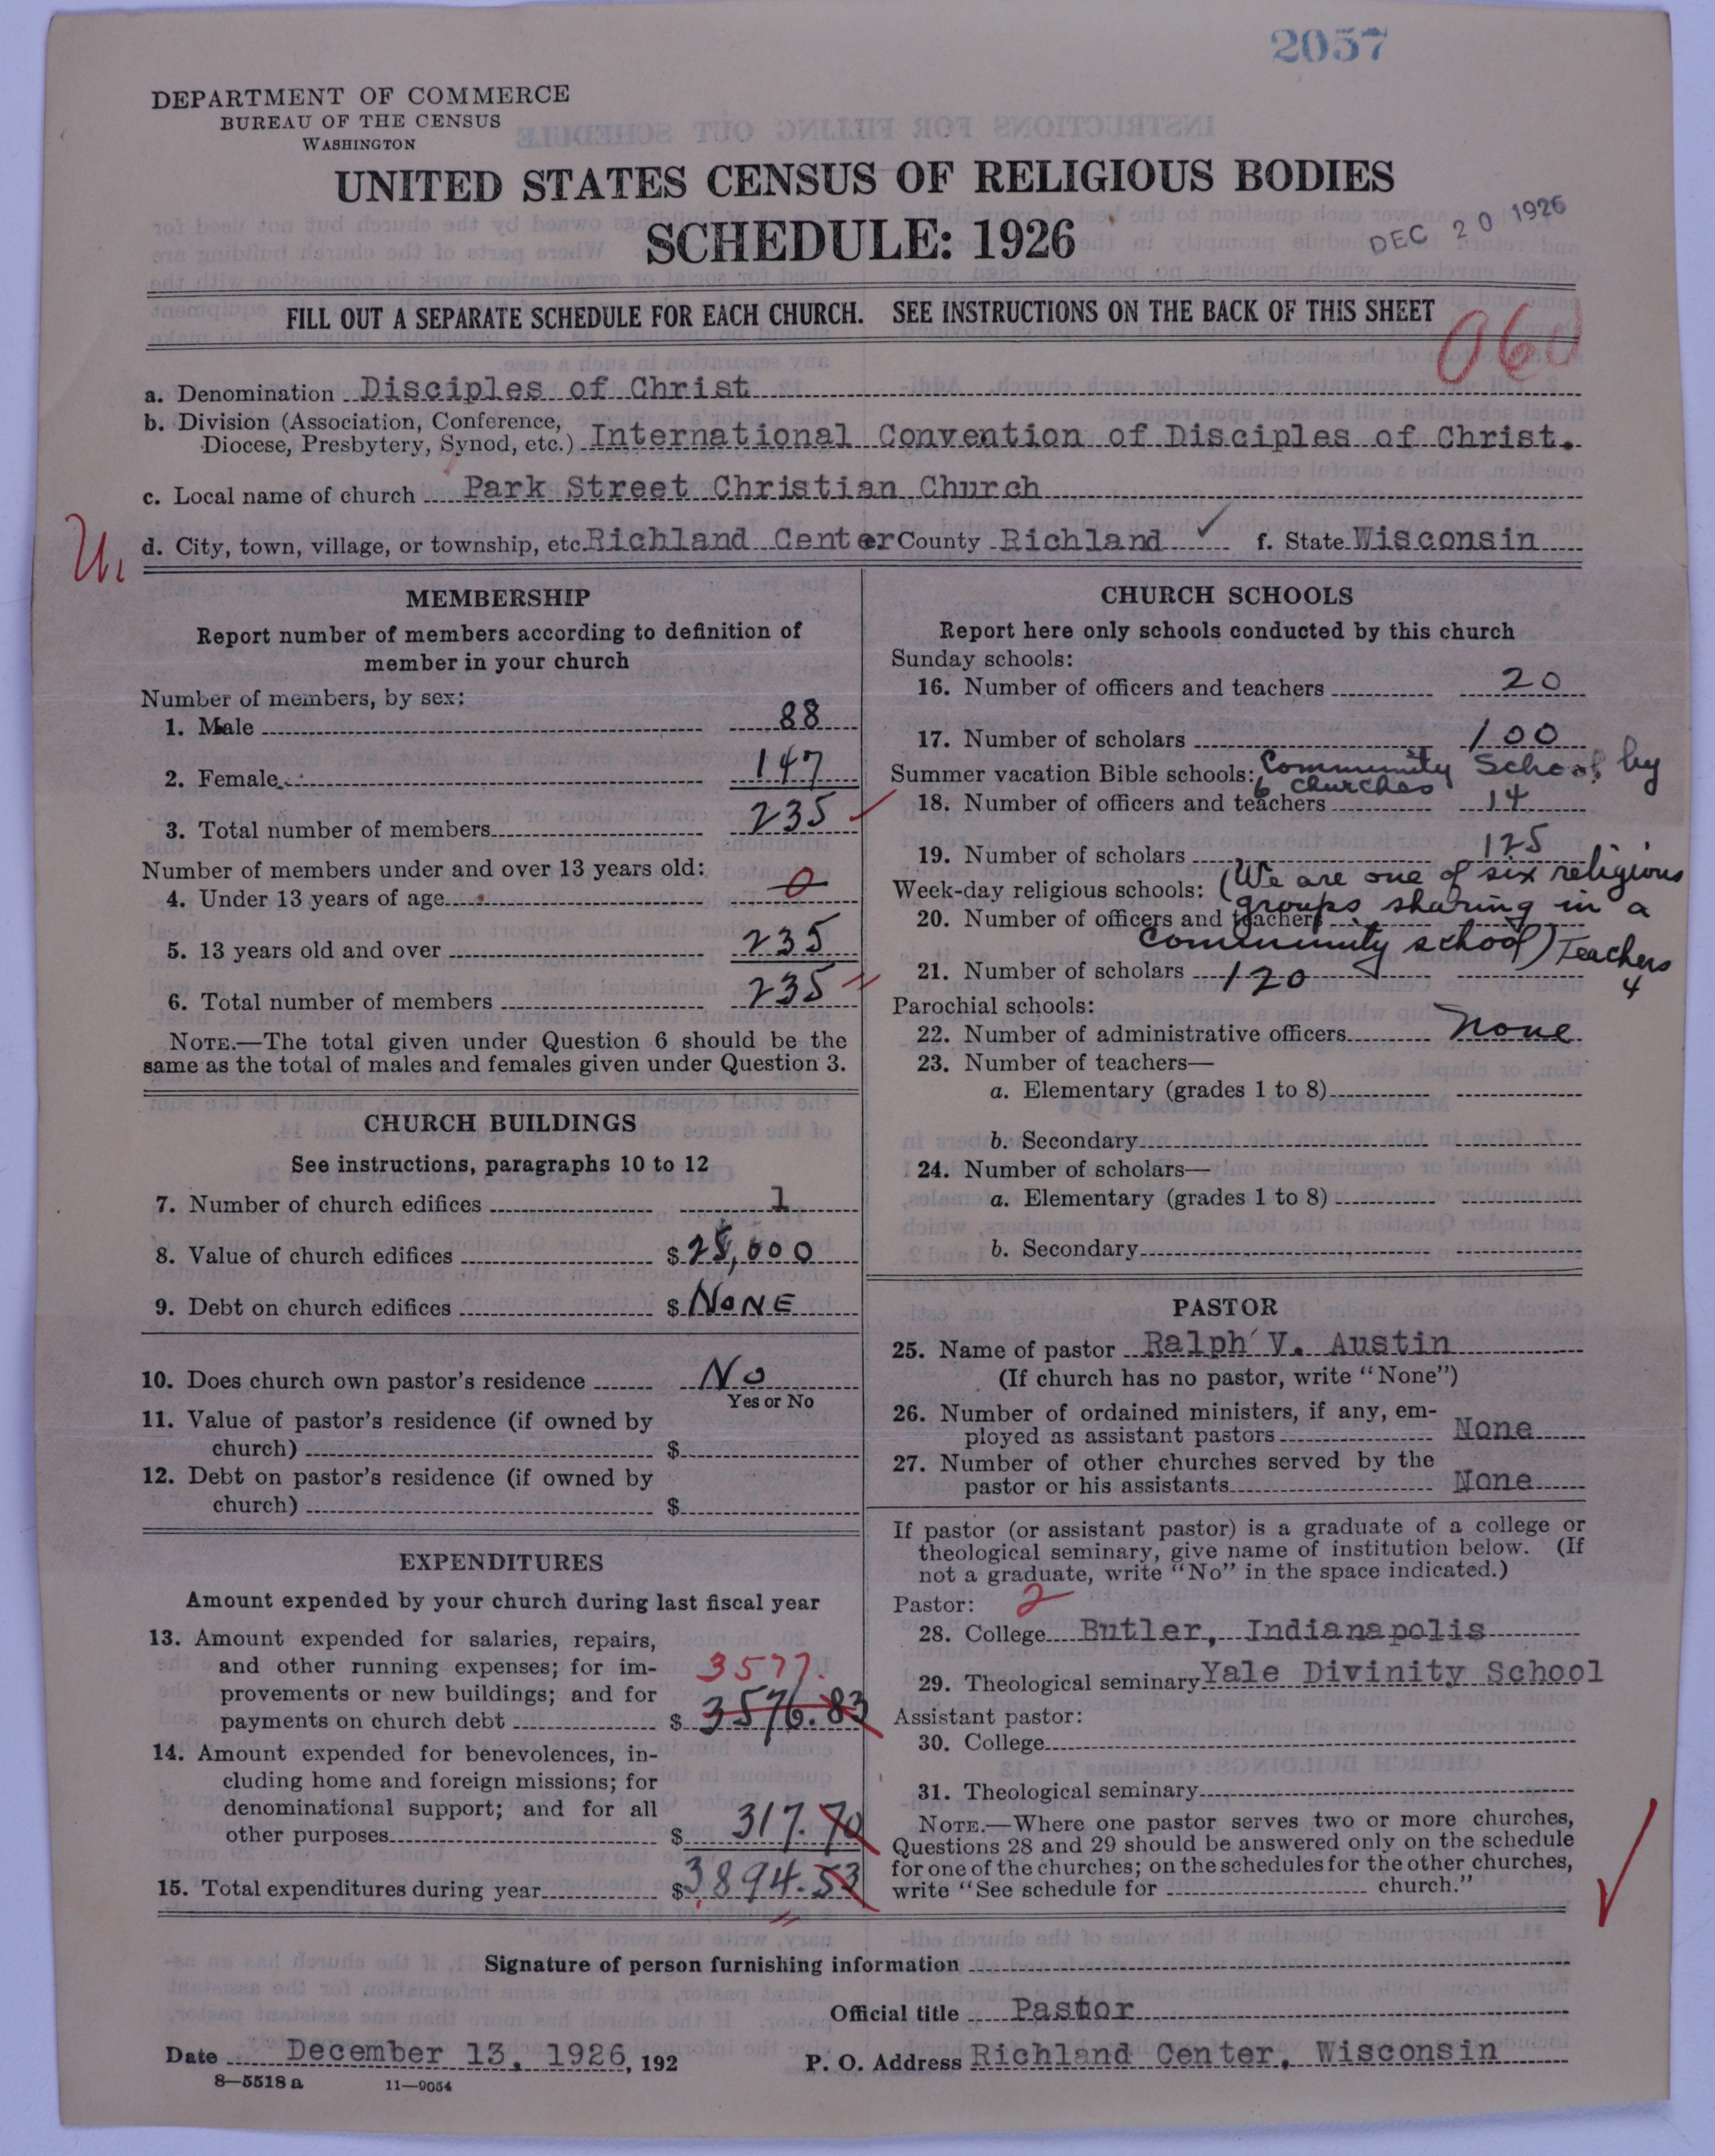 2057
DEPARTMENT OF COMMERCE
BUREAU OF THE CENSUS
WASHINGTON
UNITED STATES CENSUS OF RELIGIOUS BODIES
SCHEDULE: 1926
DEC 20 1926
FILL OUT A SEPARATE SCHEDULE FOR EACH CHURCH. SEE INSTRUCTIONS ON THE BACK OF THIS SHEET
a. Denomination Disciples of Christ
b. Division (Association, Conference,
Diocese, Presbytery, Synod, etc.) International Convention of Disciples of Christ.
c. Local name of church Park Street Christian Church
d. City, town, village, or township, etc. Richland Center County Richland ✓ f. State Wisconsin
MEMBERSHIP
Report number of members according to definition of
member in your church
Number of members, by sex:
1. Male 88
2. Female 147
3. Total number of members 235
Number of members under and over 13 years old:
4. Under 13 years of age 0
5. 13 years old and over 235
6. Total number of members 235
NOTE.—The total given under Question 6 should be the
same as the total of males and females given under Question 3.
CHURCH BUILDINGS
See instructions, paragraphs 10 to 12
7. Number of church edifices 1
8. Value of church edifices $ 25,000
9. Debt on church edifices $ NONE
10. Does church own pastor's residence No
Yes or No
11. Value of pastor's residence (if owned by
church) $
12. Debt on pastor's residence (if owned by
church) $
EXPENDITURES
Amount expended by your church during last fiscal year
13. Amount expended for salaries, repairs,
and other running expenses; for im-
provements or new buildings; and for 3577.
payments on church debt $ 3576.83
14. Amount expended for benevolences, in-
cluding home and foreign missions; for
denominational support; and for all
other purposes $ 317.70
15. Total expenditures during year $ 3894.53
CHURCH SCHOOLS
Report here only schools conducted by this church
Sunday schools:
16. Number of officers and teachers 20
17. Number of scholars 100
Summer vacation Bible schools: Community School by
6 churches
18. Number of officers and teachers 14
19. Number of scholars 125
Week-day religious schools: (We are one of six religious
groups sharing in a
20. Number of officers and teachers
community school) Teachers
4
21. Number of scholars 120
Parochial schools:
22. Number of administrative officers None
23. Number of teachers—
a. Elementary (grades 1 to 8)
b. Secondary
24. Number of scholars—
a. Elementary (grades 1 to 8)
b. Secondary
PASTOR
25. Name of pastor Ralph V. Austin
(If church has no pastor, write "None")
26. Number of ordained ministers, if any, em-
ployed as assistant pastors None
27. Number of other churches served by the
pastor or his assistants None
If pastor (or assistant pastor) is a graduate of a college or
theological seminary, give name of institution below. (If
not a graduate, write "No" in the space indicated.)
Pastor: 2
28. College Butler, Indianapolis
29. Theological seminary Yale Divinity School
Assistant pastor:
30. College
31. Theological seminary
NOTE.—Where one pastor serves two or more churches,
Questions 28 and 29 should be answered only on the schedule
for one of the churches; on the schedules for the other churches,
write "See schedule for church."
Signature of person furnishing information
Official title Pastor
Date December 13, 1926, 192
P. O. Address Richland Center, Wisconsin
8—5518 a 11—9054